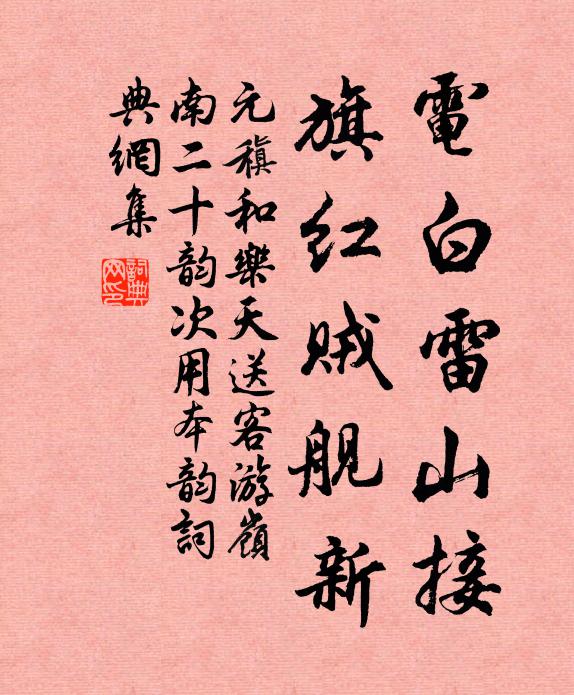 電白雷山接
旗红贼舰新
元稹和樂天送客游嶺
南二十韵次用本韵詞
典網集
詞典网印